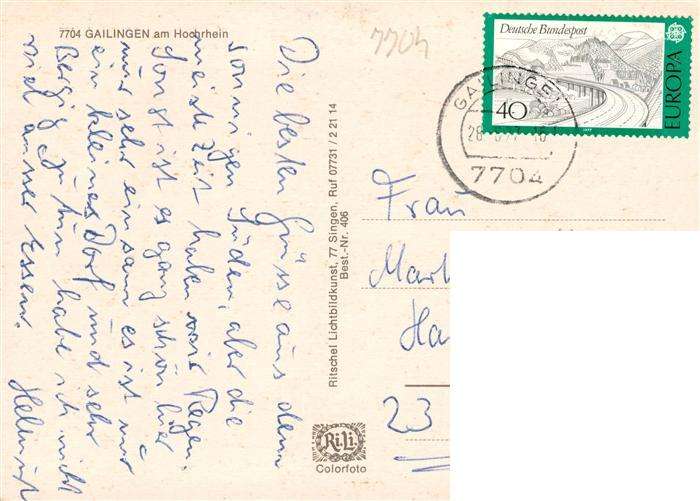 7704 GAILINGEN am Hochrhein
Die besten Grüsse aus dem
sonnigen Süden, aber die
meiste Zeit haben wir Regen.
Sonst ist es ganz schön hier
nur sehr einsam es ist nur
ein kleines Dorf und sehr
Bergig zu tun habe ich nicht
viel ausser Essen.
Helmut
Ritschel Lichtbildkunst, 77 Singen, Ruf 07731 / 2 21 14
Best.-Nr. 406
Ri.Li.
Colorfoto
7704
Deutsche Bundespost
40
EUROPA
1977
GAILINGEN
7704
Frau
23